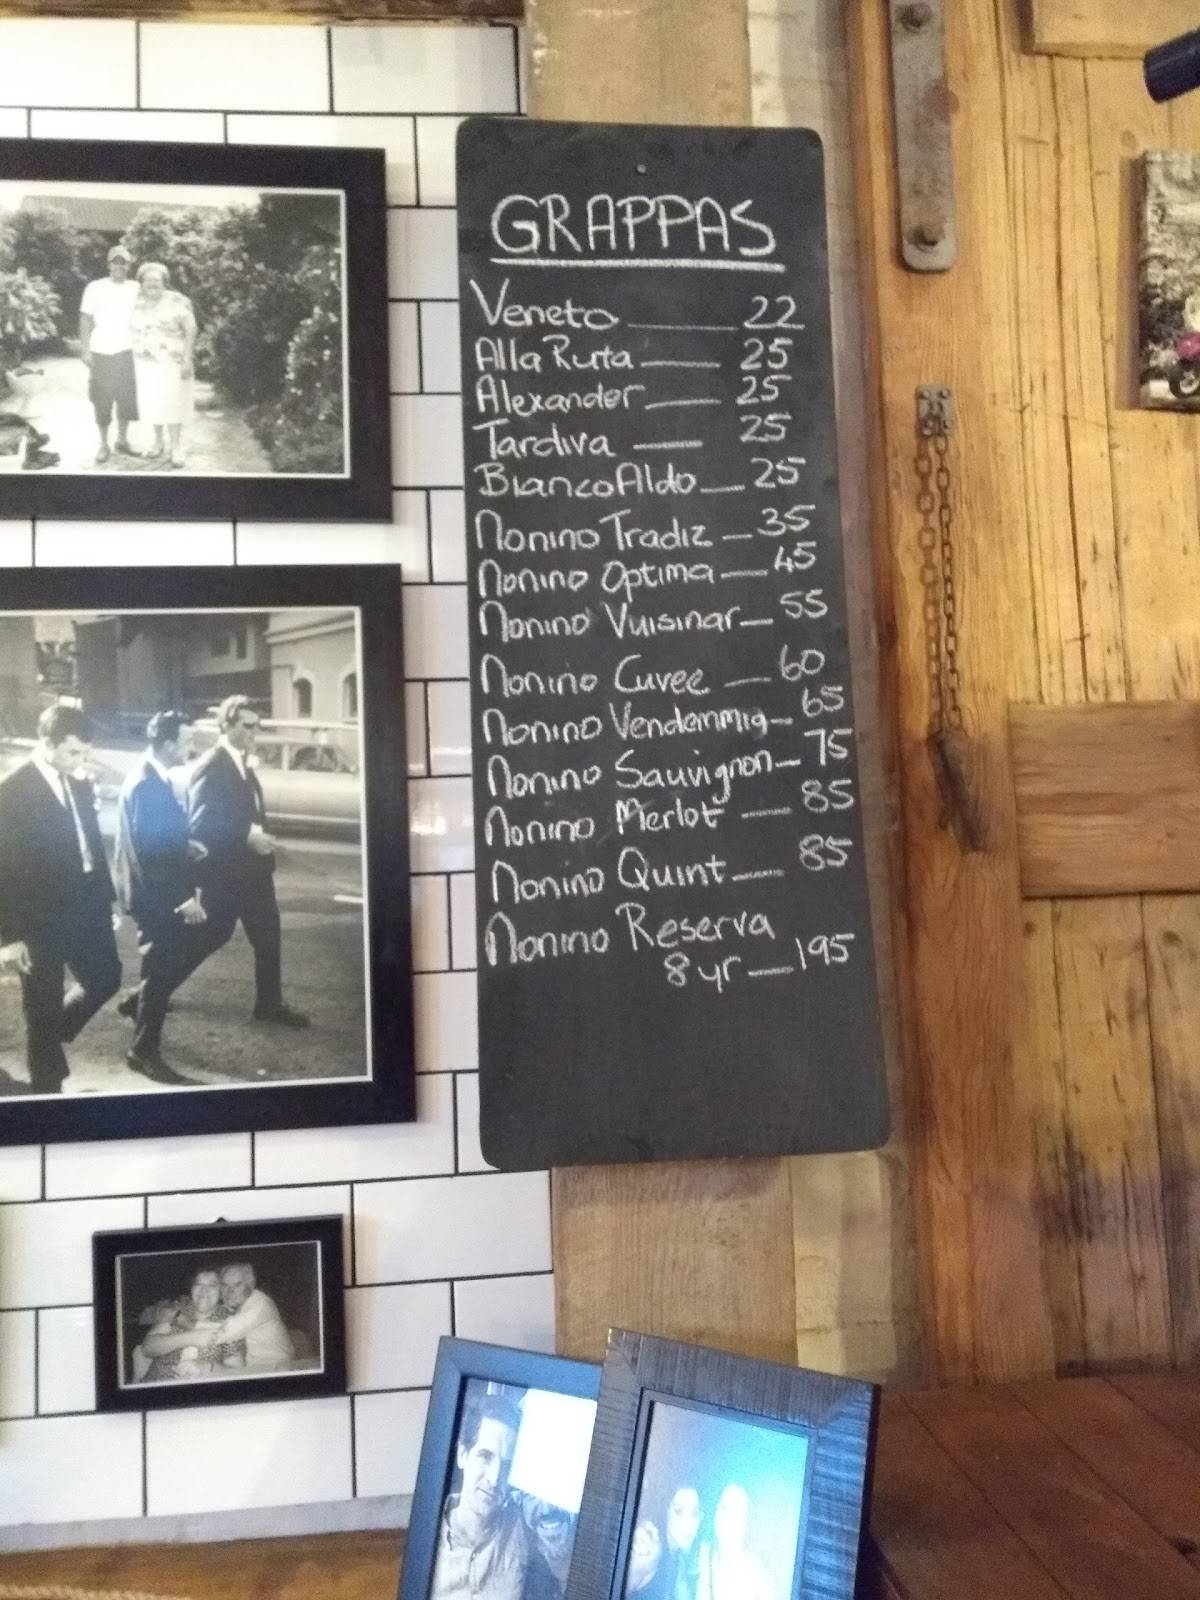 GRAPPAS
Veneto 22
Alla Ruta 25
Alexander 25
Tardiva 25
Bianco Aldo 25
Nonino Tradiz 35
Nonino Optima 45
Nonino Vuisinar 55
Nonino Cuvee 60
Nonino Vendemmia 65
Nonino Sauvignon 75
Nonino Merlot 85
Nonino Quint 85
Nonino Reserva
8 yr 195